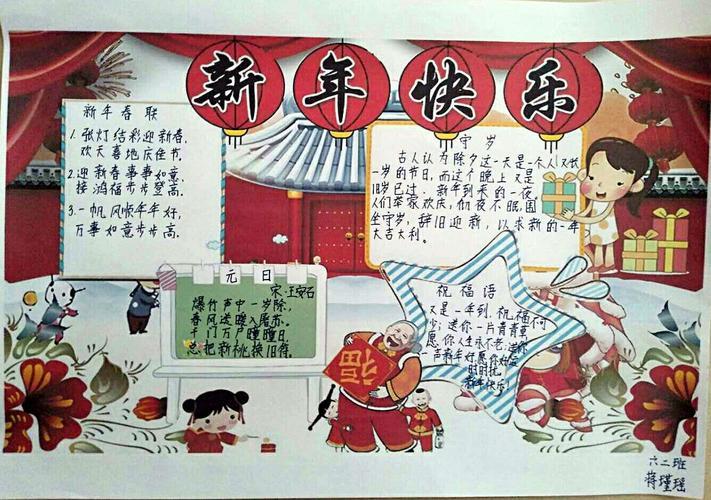 新年快乐
新年春联
1. 张灯结彩迎新春，
欢天喜地庆佳书.
2. 迎新春事事如意，
接鸿福步步登高.
3. 一帆风顺年年好，
万事如意步步高.
守岁
古人认为除夕这一天是一个人又长
一岁的节日，而这个晚上又是
旧岁已过、新年到来的一夜，
人们举家欢庆，彻夜不眠，围
坐守岁，辞旧迎新，以求新的一年
大吉大利。
元日
宋·王安石
爆竹声中一岁除，
春风送暖入屠苏。
千门万户曈曈日，
总把新桃换旧符。
祝福语
又是一年到，祝福不可
少；送你一片青青草
愿你人生永不老；送你
一声新年好，愿你好运
时时扰
新年快乐！
福
六二班
蒋瑾瑶